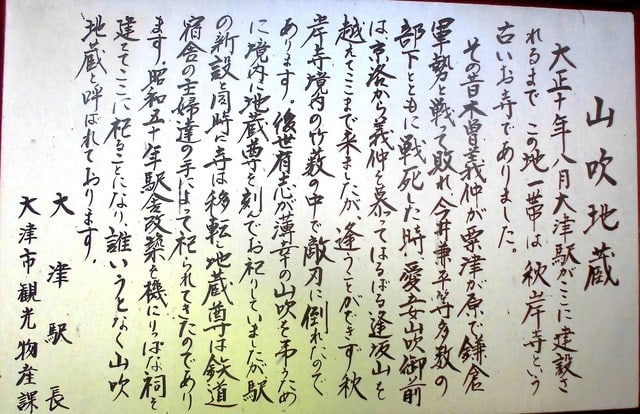 山吹地蔵
大正十年八月大津駅がここに建設さ
れるまで この地一帯は 秋岸寺という
古いお寺でありました。
その昔木曽義仲が粟津が原で鎌倉
軍勢と戦って敗れ、今井兼平等多数の
部下とともに戦死した時、愛妾山吹御前
は、京洛から義仲を慕ってはるばる逢坂山を
越えてここまで来ましたが、逢うことができず秋
岸寺境内の竹薮の中で敵刃に倒れたので
あります。後世有志が薄幸の山吹を弔うため
に境内に地蔵尊を刻んでお祀りしていましたが駅
の新設と同時に寺は移転し地蔵尊は鉄道
宿舎の主婦達の手によって祀られてきたのであり
ます。昭和五十年駅舎改築を機にりっぱな祠を
建ててここに祀ることになり、誰いうとなく山吹
地蔵と呼ばれております。
大津駅長
大津市観光物産課